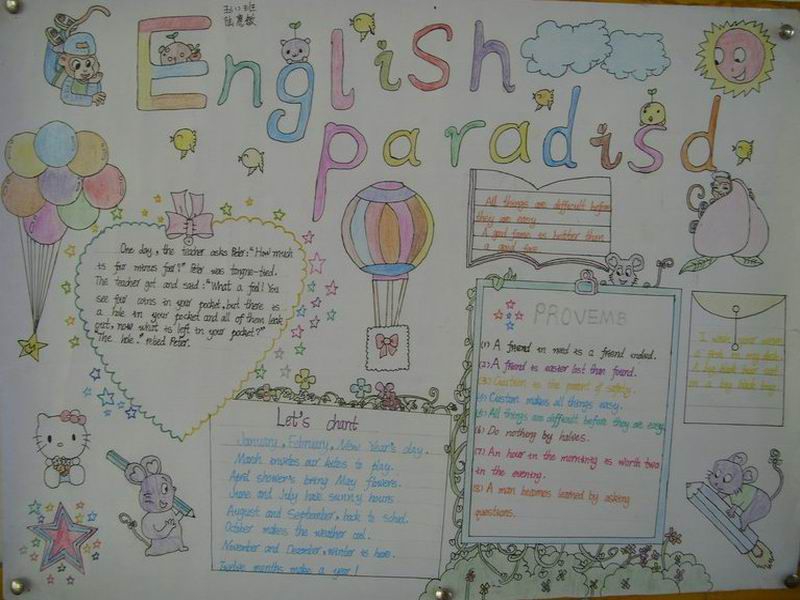 English
paradisd
One day, the teacher asks Peter: "How much
is four minus four?" Peter was tongue-tied.
The teacher got and said: "What a fool! You
see four coins in your pocket, but there is
a hole in your pocket and all of them leak
out, now what is left in your pocket?"
"The hole." Peter.
All things are difficult before
they are easy
A good fame is better than
a good
PROVEMB
(1) A friend in need is a friend indeed.
(2) A friend is easier lost than found.
is the parent of safety.
Custom makes all things easy.
All things are difficult before they are easy
(6) Do nothing by halves.
(7) An hour in the morning is worth two
in the evening.
(8) A man becomes learned by asking
questions.
I wish
a fish in my dish
A big black
on a big black
Let's chant
January, February, New Year's day.
March invites our kites to play.
April showers bring May flowers.
June and July have sunny hours
August and September, back to school.
October makes the weather cool.
November and December, winter is here.
Twelve months make a year!